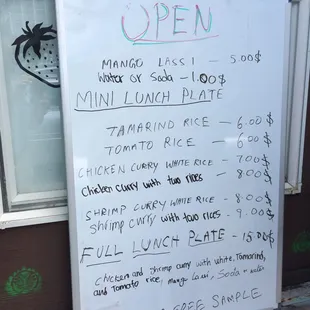 OPEN
MANGO LASSI - 5.00$
Water or Soda - 1.00$
MINI LUNCH PLATE
TAMARIND RICE - 6.00$
TOMATO RICE - 6.00$
CHICKEN CURRY WHITE RICE - 7.00$
Chicken curry with two rices - 8.00$
SHRIMP CURRY WHITE RICE - 8.00$
Shrimp curry with two rices - 9.00$
FULL LUNCH PLATE - 15.00$
Chicken and Shrimp curry with white, Tamarind,
and Tomato rice, Mango Lassi, Soda or water
FREE SAMPLE